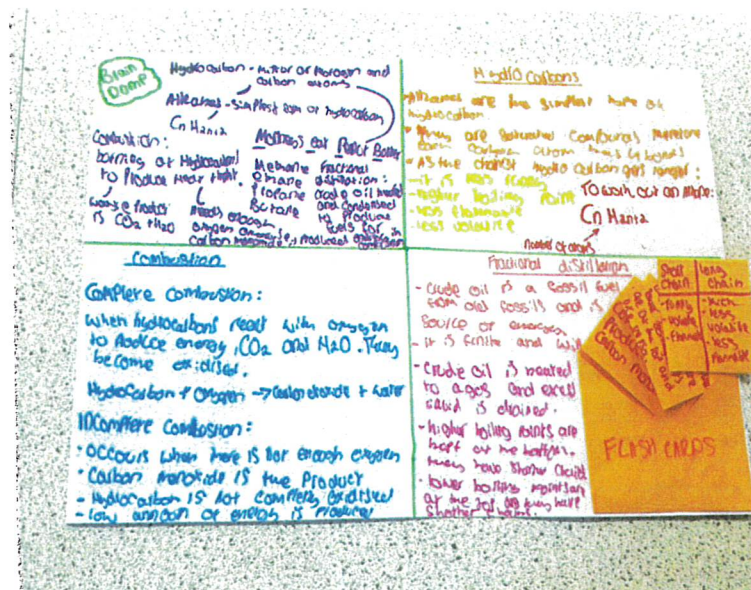 Brain
Dump
Hydrocarbon - mixture of hydrogen and
carbon atoms
Alkanes - simplest form of hydrocarbon
Cn H2n+2
Combustion:
burning of Hydrocarbons
to Produce heat + light.
Waste Product
is CO2 + H2O
Needs enough
oxygen
carbon monoxide is produced
Monkeys Eat Peanut Butter
Methane
ethane
Propane
Butane
Fractional
distillation:
crude oil heated
and condensed
to produce
fuels for
Hydrocarbons
Alkanes are the simplest type of
hydrocarbon.
They are saturated compounds therefore
each carbon atom has 4 bonds
- As the chain of hydrocarbon gets longer:
- it is less runny
- higher boiling point
- less flammable
- less volatile
To work out an alkane:
Cn H2n+2
number of atoms
Combustion
Complete Combustion:
When hydrocarbons react with oxygen
to produce energy, CO2 and H2O. They
become oxidised.
Hydrocarbon + Oxygen → Carbon dioxide + water
Incomplete Combustion:
- Occurs when there is not enough oxygen
- Carbon monoxide is the Product
- Hydrocarbon is not completely oxidised
- low amount of energy is produced
Fractional distillation
- crude oil is a fossil fuel
from old fossils and is
source of energy
- it is finite and will
- crude oil is heated
to a gas and excess
liquid is drained.
- higher boiling points are
kept at the bottom.
they have
- lower boiling
at the top as they have
shorter chains.
short
chain
long
chain
- runny
- volatile
- flammable
- thick
- less
volatile
- less
flammable
Carbon mono
FLASH CARDS